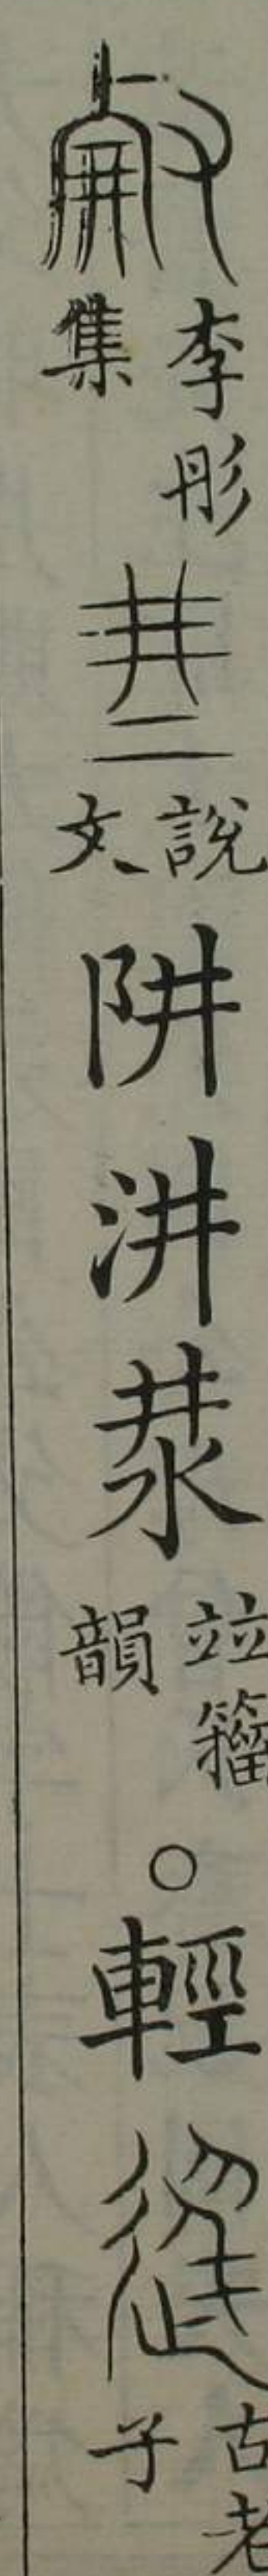 李彤集 說文 阱汬㳮 竝籀韻 ○輕 古老子